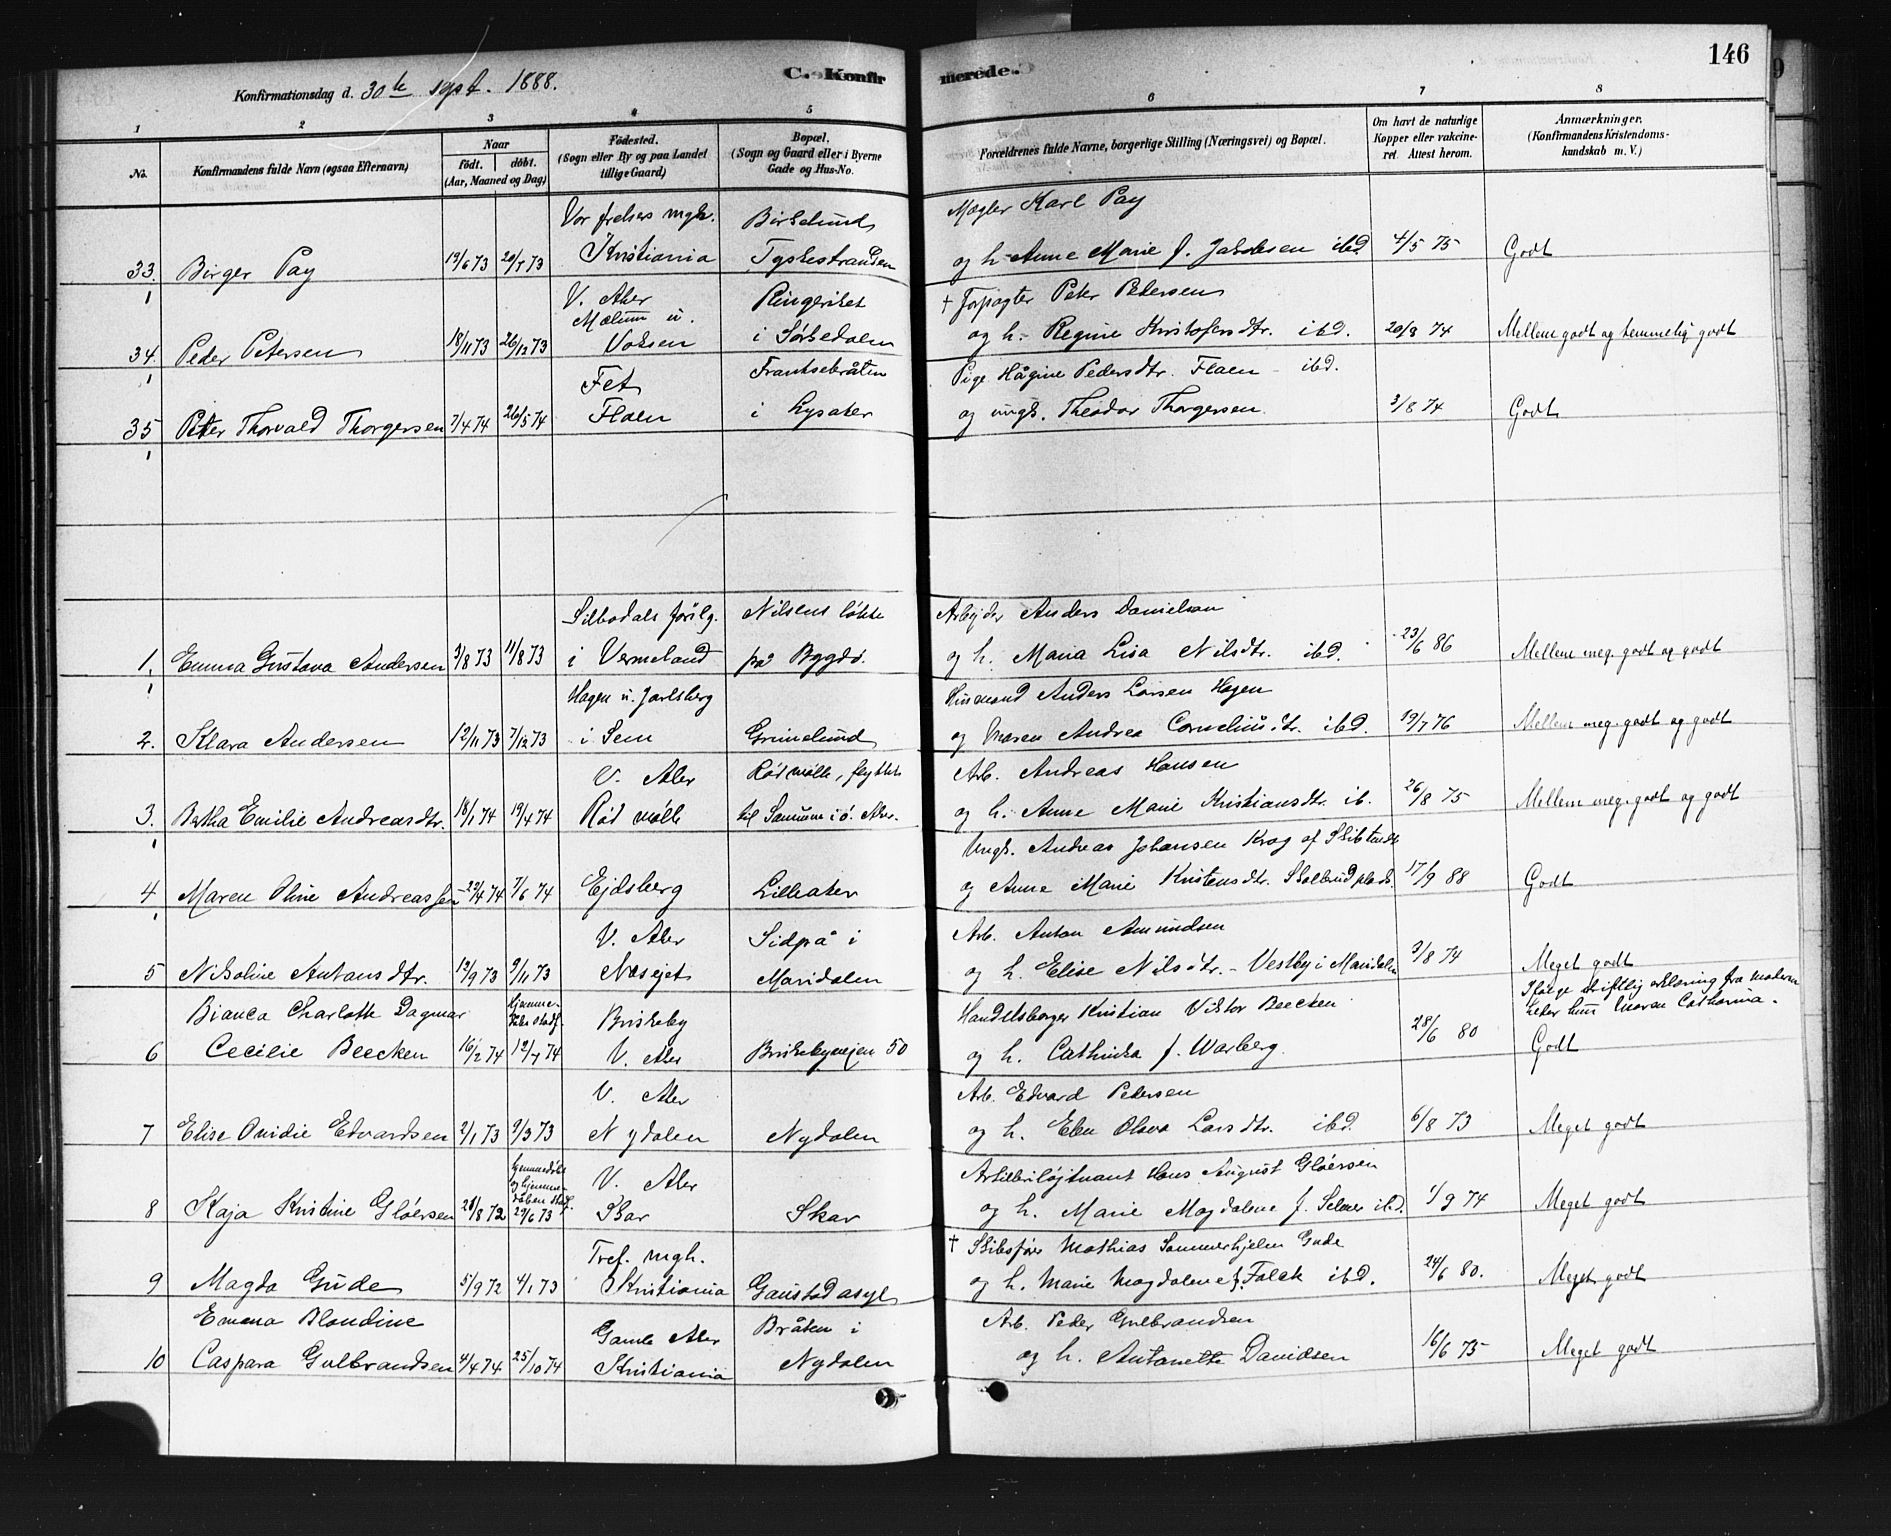 146
C. Konfirmerede.
Konfirmationsdag d. 30te Sept. 1888.
1 2 3 4 5 6 7 8
No.
Konfirmandens fulde Navn (ogsaa Efternavn)
Naar
født. døbt.
(Aar, Maaned og Dag)
Fødested.
(Sogn eller By og paa Landet
tillige Gaard)
Bopæl.
(Sogn og Gaard eller i Byerne
Gade og Hus-No.
Forældrenes fulde Navne, borgerlige Stilling (Næringsvei) og Bopæl.
Om havt de naturlige
Kopper eller vakcine-
ret. Attest herom.
Anmærkninger.
(Konfirmandens Kristendoms-
kundskab m. V.)
Vor frelsers mgh. Birkelund Mægler Karl Pay
33. Birger Pay 19/6 73 20/7 73 Kristiania Tyskestranden og h. Anne Marie f. Jakobsen ibd 4/5 75 Godt
V. Aker Ringeriket † Forpagter Peter Petersen
Mælum u.
34. Peder Petersen 18/11 73 26/12 73 Voksen i Sørkedalen og h. Regine Kristofersdtr. ibd. 20/8 74 Mellem godt og temmelig godt
Fet Frantsebråten Pige Hågine Pedersdtr. Flaen ibd.
35 Peter Thorvald Thorgersen 7/4 74 26/5 74 Flaen i Lysaker og ungk. Theodor Thorgersen. 3/8 74 Godt
Silbodals förslg. Nilsens løkke Arbejder Anders Danielsen
1. Emma Gustava Andersen 3/8 73 11/8 73 i Vermeland på Bygdø. og h. Maria Lisa Nilsdtr. ibd. 23/6 86 Mellem meg. godt og godt
Hagen u. Jarlsberg Husmand Anders Larsen Hagen
2. Klara Andersen 12/11 73 7/12 73 i Sem Grimelund og Maren Andrea Corneliusdtr. ibd. 19/7 76 Mellem meg. godt og godt
V. Aker Rød mølle, flyttet Arb. Andreas Hansen
3. Bertha Emilie Andreasdtr. 18/1 74 19/4 74 Rød mølle til i ø. Aker. og h. Anne Marie Kristiansdtr. ib. 26/8 75 Mellem meg. godt og godt
Ungk. Andreas Johansen Krog af
4 Maren Oline Andreassen 7/6 74 Ejdsberg Lilleaker og Anne Marie Kristensdtr. 17/9 88 Godt
V. Aker Sidpå i Arb. Anton Amundsen
5 Nikoline Antonsdtr. 13/9 73 9/11 73 Næsejet Maridalen og h. Elise Nilsdtr. - Vestby i Maridalen 3/8 74 Meget godt
Ifølge skriftlig erklæring fra moderen
heder hun Maren Catharina.
Bianca Charlotte Dagmar Briskeby Handelsborger Kristian Viktor Beecken
6 Cecilie Beecken 16/2 74 12/7 74 V. Aker Briskebyvejen 50 og h. Cathinka f. Warberg. 28/6 80 Godt
V. Aker Arb. Edvard Petersen
7 Elise Ovidie Edvardsen 2/1 73 9/3 73 Nydalen Nydalen og h. Elen Olava Larsdtr. ibd. 6/8 73 Meget godt
hjemmedøbt
V. Aker Artilleriløjtnant Hans August Gløersen
8 Kaja Kristine Gløersen 28/8 72 29/6 73 Skar Skar og h. Marie Magdalene f. Selmer ibd. 1/9 74 Meget godt
Tref. mgh. † Skibsfører Mathias Sommerhjelm Gude
9 Magda Gude 5/9 72 4/1 73 Kristiania Gaustad asyl og h. Marie Magdalene f. Falck ibd. 24/6 80. Meget godt
Emma Blandine Gamle Aker Bråten i Arb. Peder Gulbrandsen
10 Caspara Gulbrandsen 4/4 74 25/10 74 Kristiania Nydalen og h. Antonette Davidsen 16/6 75 Meget godt